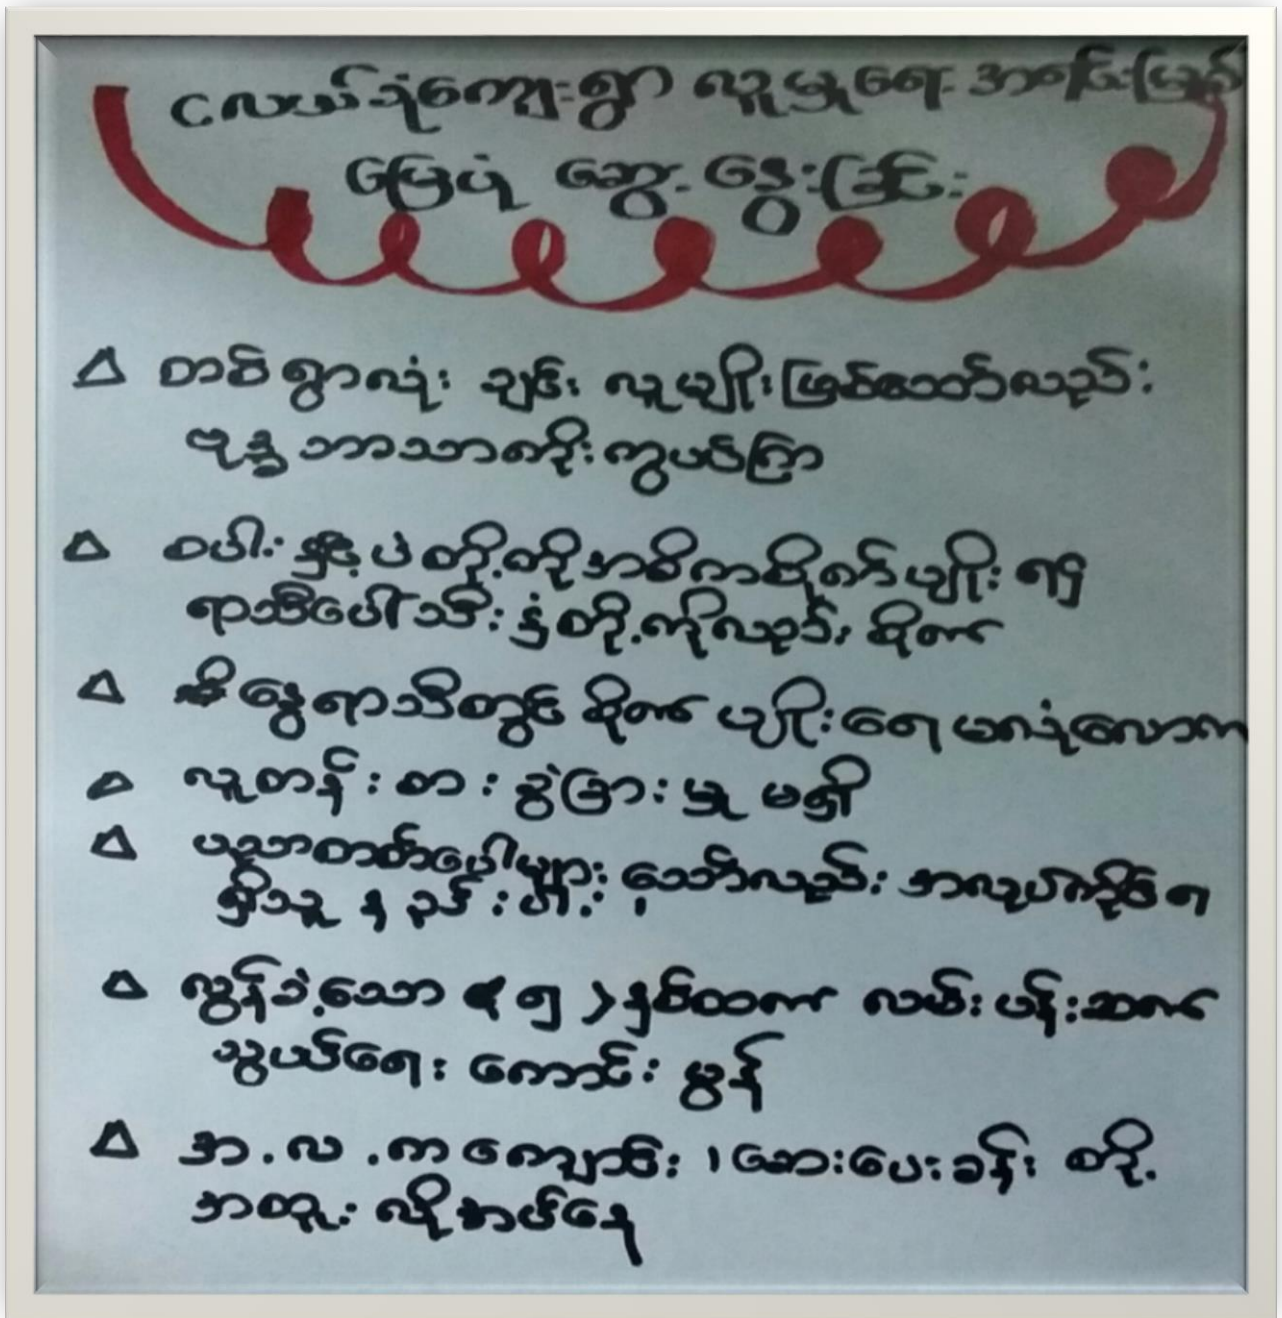 ငလယ်သုံကျေးရွာ လူမှုရေး အခြင်းမြစ်
မြေပုံ ဆွေး နွေးခြင်း
△ တစ်ရွာလုံး ချင်း လူမျိုးဖြစ်သော်လည်း
ဗုဒ္ဓဘာသာကိုးကွယ်ကြ
△ စပါး နှင့် ပဲ တို့ကိုအဓိကစိုက်ပျိုး ၍
ရာသီပေါ်သီး နှံတို့ကိုလည်း စိုက်
△ နွေရာသီတွင် စိုက် ပျိုးရေ မလုံလောက
△ လူတန်း စား ခွဲခြား မှု မရှိ
△ ပညာတတ်ပေါများ သော်လည်း အလုပ်ကိုင်ရ
ရှိသူ နည်းပါး
△ လွန်ခဲ့သော < ၅ > နှစ်ထက် လမ်း ပန်းဆက်
သွယ်ရေး ကောင်း မွန်
△ အ.လ.က ကျောင်း၊ ဆေးပေးခန်း တို့
အထူး လိုအပ်နေ